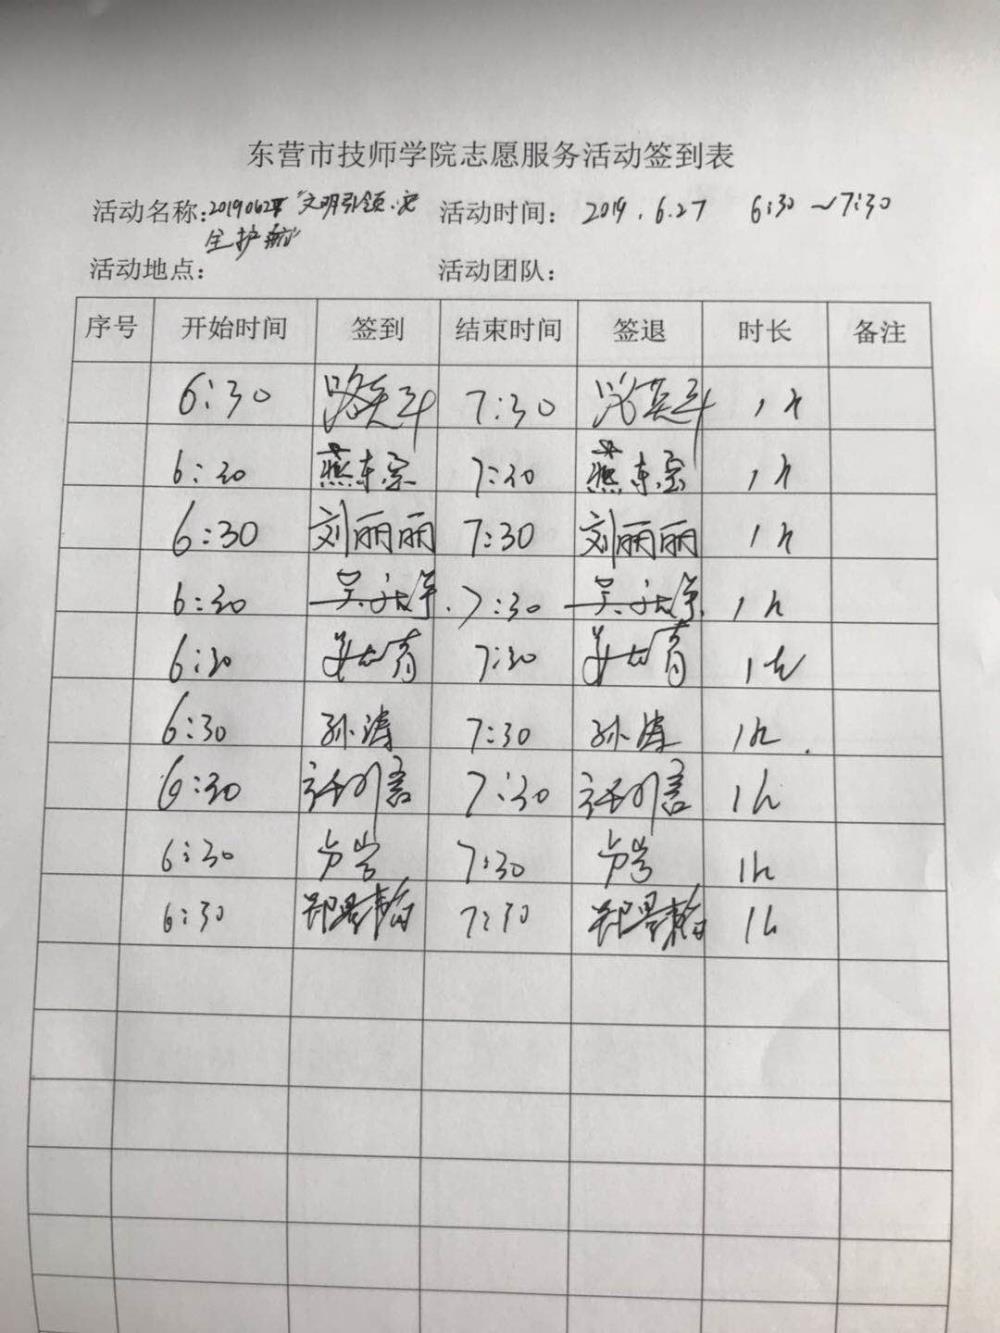 东营市技师学院志愿服务活动签到表
活动名称:20190627 "文明引领·安 活动时间: 2019.6.27 6:30~7:30
全护航"
活动地点: 活动团队:
序号 开始时间 签到 结束时间 签退 时长 备注
6:30 7:30 1h
6:30 燕东宗 7:30 燕东宗 1h
6:30 刘丽丽 7:30 刘丽丽 1h
6:30 7:30 1h
6:30 7:30 1h
6:30 孙涛 7:30 孙涛 1h.
6:30 7:30 1h
6:30 7:30 1h
6:30 7:30 1h